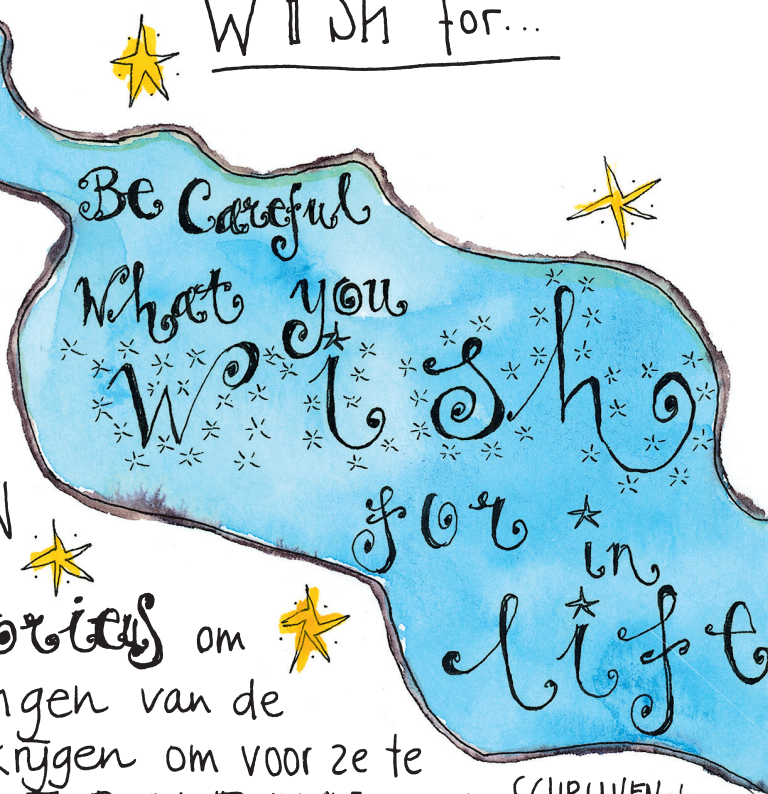 WISH for...
Be Careful
What you
Wish
for in
life
om
van de
krijgen om voor ze te